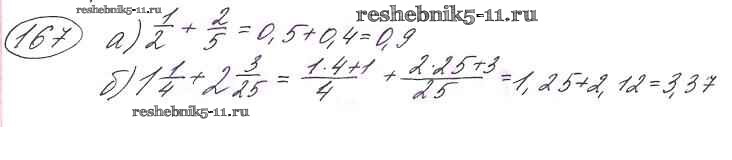 reshebnik5-11.ru
reshebnik5-11.ru
167 а) 1/2 + 2/5 = 0,5+0,4=0,9
б) 1 1/4 + 2 3/25 = (1·4+1)/4 + (2·25+3)/25 = 1,25+2,12=3,37
reshebnik5-11.ru